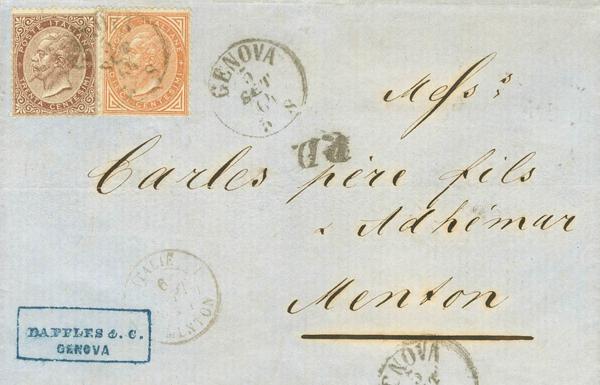 POSTE ITALIANE
TRENTA CENTESIMI
POSTE ITALIANE
CENTESIMI
GENOVA
5
SET
S
Mess.rs
P.D.
Carles père fils
& Adhémar
Menton
ITALIE
MENTON
DAPPLES & C.
GENOVA
GENOVA